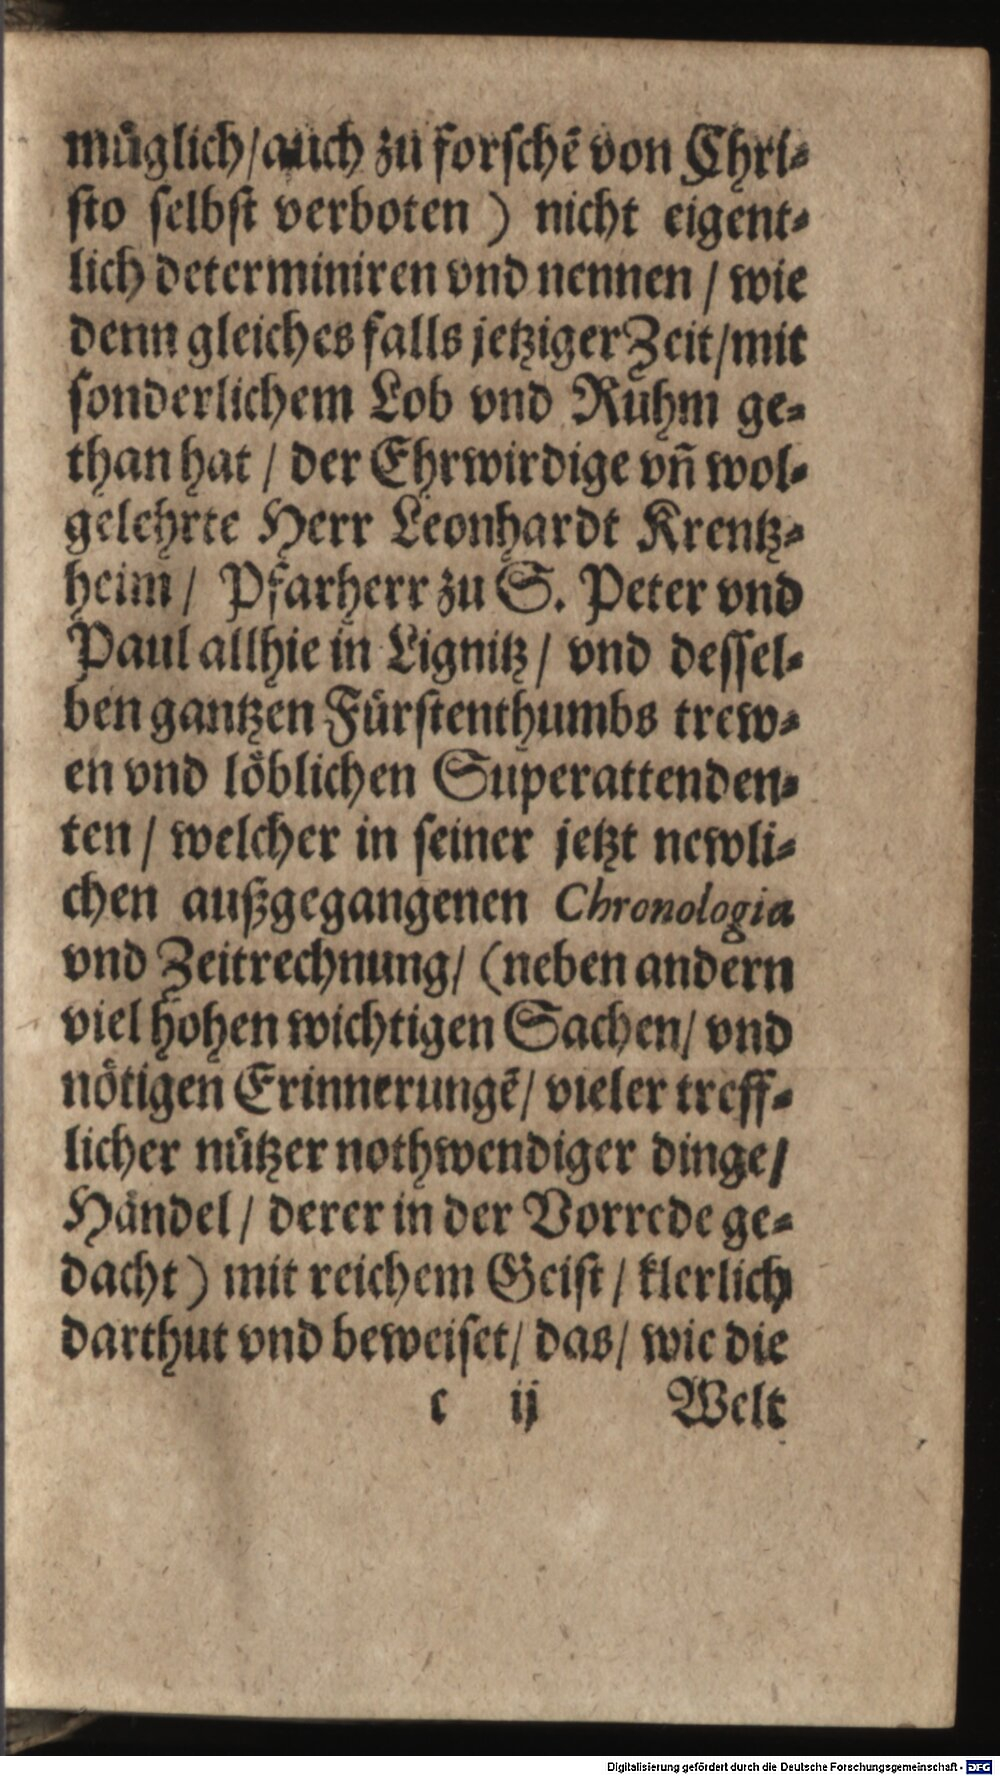 müglich/auch zu forschẽ von Chri-
sto selbst verboten) nicht eigent-
lich determiniren vnd nennen / wie
denn gleiches falls jetziger Zeit/mit
sonderlichem Lob vnd Ruhm ge-
than hat / der Ehrwirdige vñ wol-
gelehrte Herr Leonhardt Krentz-
heim / Pfarherr zu S. Peter vnd
Paul allhie in Lignitz / vnd dessel-
ben gantzen Fürstenthumbs trew-
en vnd löblichen Superattenden-
ten / welcher in seiner jetzt newli-
chen außgegangenen Chronologia
vnd Zeitrechnung/ (neben andern
viel hohen wichtigen Sachen/ vnd
nötigen Erinnerungẽ/ vieler treff-
licher nützer nothwendiger dinge/
Händel / derer in der Vorrede ge-
dacht) mit reichem Geist / klerlich
darthut vnd beweiset/ das/ wie die
c ij Welt
Digitalisierung gefördert durch die Deutsche Forschungsgemeinschaft - DFG